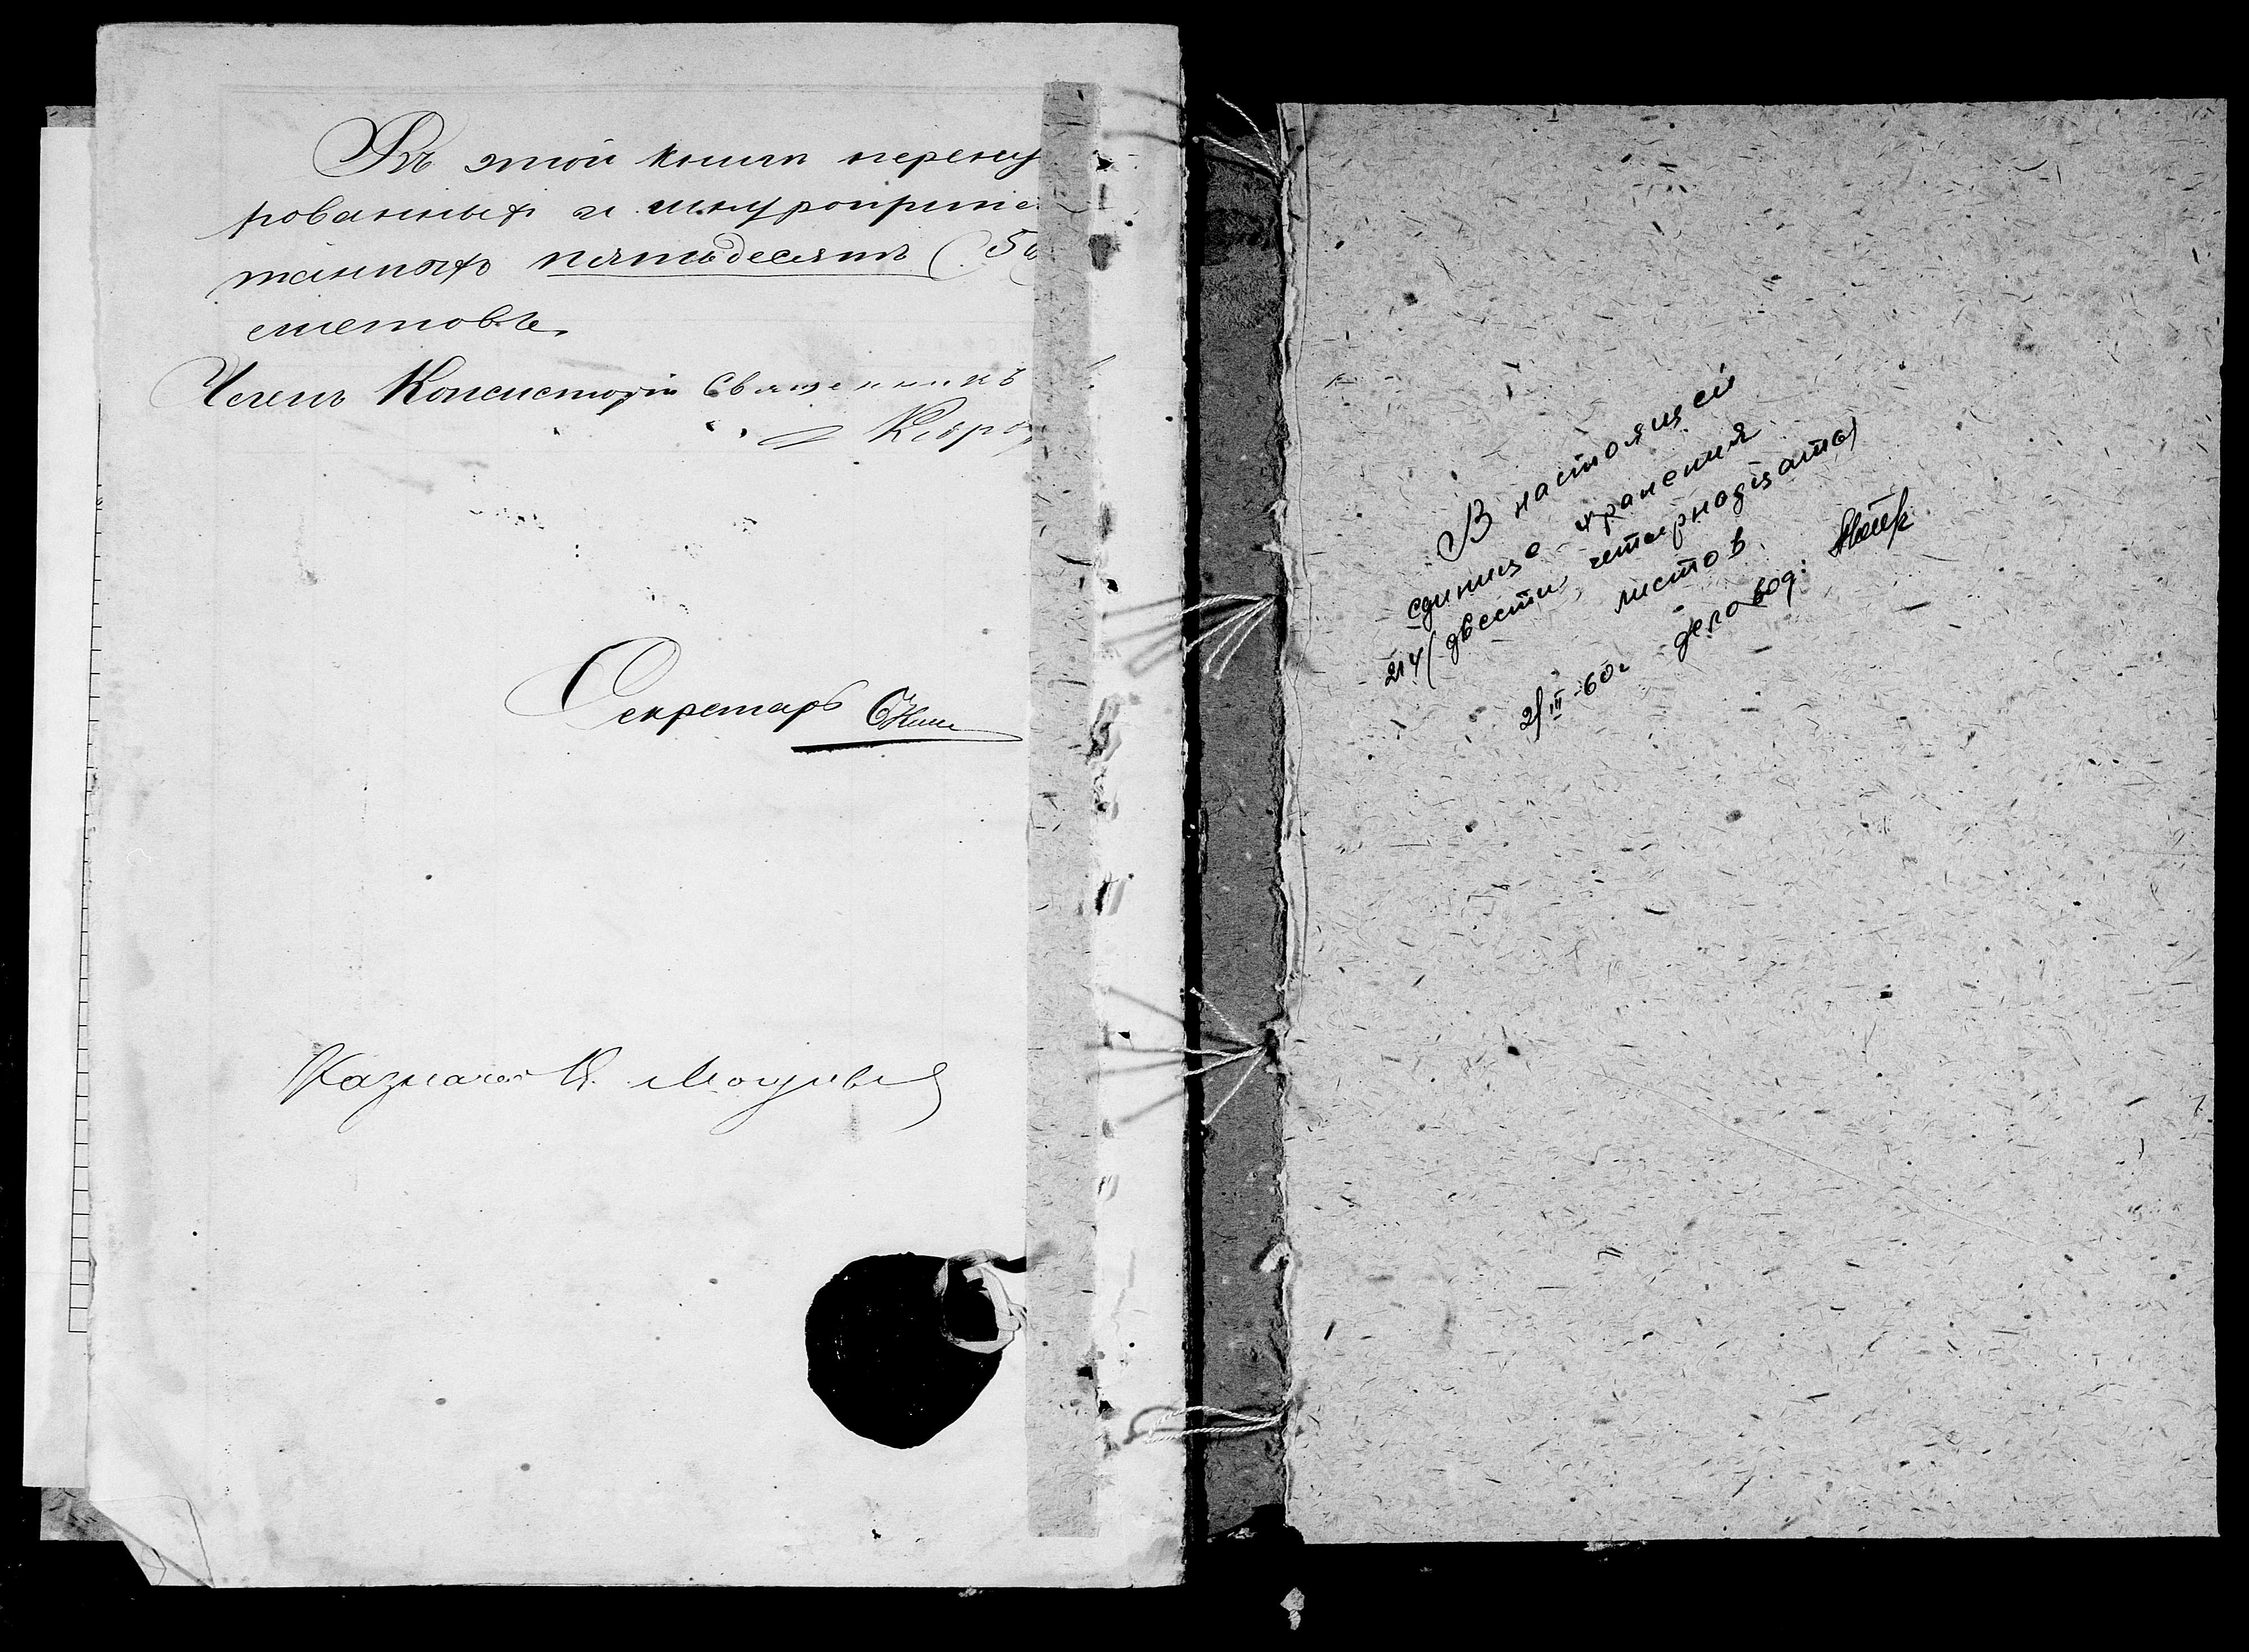 Въ этой книгѣ перену
рованныхъ и шнуроприпе
танныхъ пятьдесятъ (50
листовъ.
Членъ Консисторіи Священникъ
Секретарь
Казначей К.
В настоящей
единице хранения
214 (двести четырнадцать)
листов.
2/III-60г делоВод: